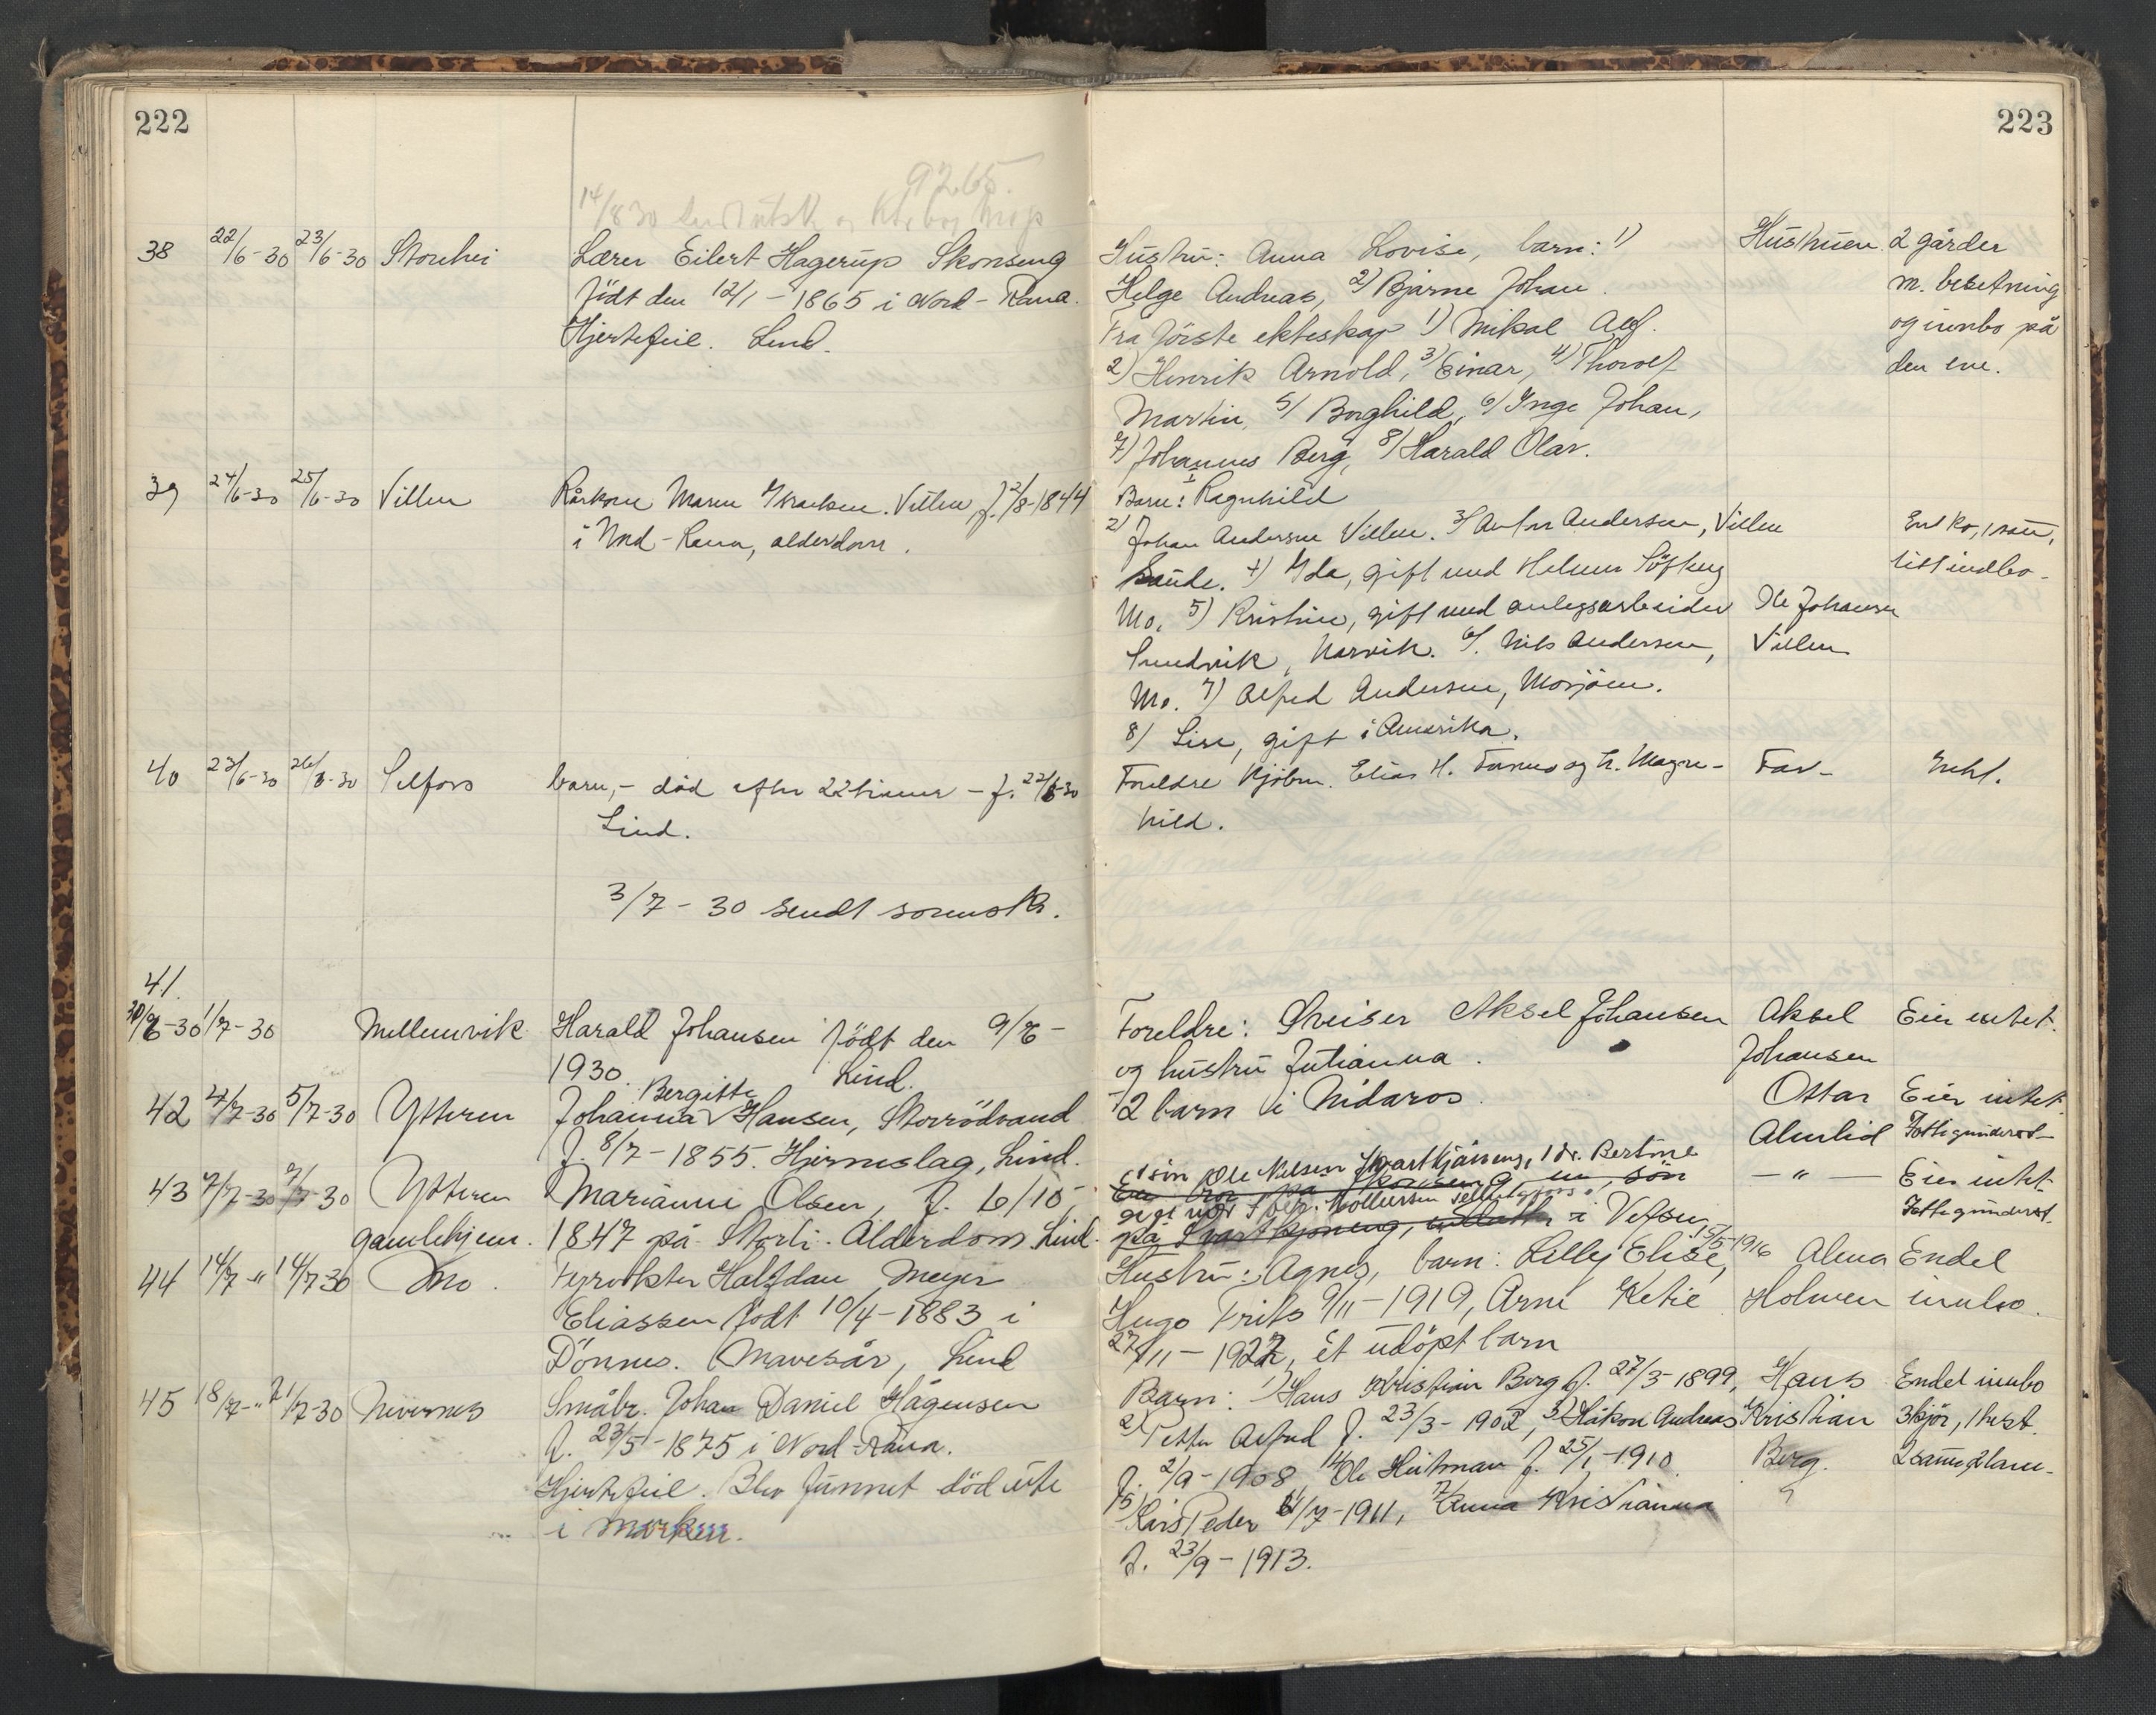 222
9265.
14/8 30
38 22/6-30 23/6-30 Storhei Lærer Eilert Hagerup Skonseng
født den 12/1-1865 i Nord-Rana.
Hjertefeil. Lind.
39 24/6-30 25/6-30 Villen Kårkone Maren Villen, f. 2/8-1844
i Nord-Rana, alderdom.
40 23/6-30 26/6-30 Selfors barn,- död efter 22 timer - f. 22/6-30
Lind.
3/7-30 sendt sorensk.
41.
30/6-30 1/7-30 Mellemvik Harald Johansen född den 9/6-
1930. Lind.
42 4/7-30 5/7-30 Ytteren Johanna Bergitte Hansen, Storrödvand
f. 8/7-1855. Hjerneslag, Lind.
43 7/7-30 7/7-30 Ytteren Marianne Olsen, f. 6/10-
gamlehjem. 1847 på Storli. Alderdom Lind.
44 14/7-" 14/7 30 Mo. Fyrvokter Halfdan Meyer
Eliassen född 10/4-1883 i
Dönnes. Mavesår, Lind
45 18/7-" 21/7-30 Nivernes Småbr. Johan Daniel Hågensen
f. 23/5-1875 i Nord-Rana.
Hjertefeil. Blev funnet död ute
i marken.
223
Hustru: Anna Lovise, barn: 1) Hustruen. 2 gårder
Helge Andreas, 2) Bjarne Johan. m. besetning
Fra förste ekteskap 1) Mikal Alf. og innbo på
2) Henrik Arnold, 3) Einar, 4) Thorolf den ene.
Martin, 5) Borghild, 6) Inge Johan,
7) Johannes Berg, 8) Harald Olav.
Barn: 1 Ragnhild
2) Johan Andersen Villen. 3) Anton Andersen, Villen En ko, 1 sau,
4) Ida, gift med Helmer litt indbo.
Mo. 5) Kristine, gift med anlegsarbeider Ole Johansen
Sundvik, Narvik. 6) Nils Andersen, Villen
Mo. 7) Alfred Andersen, Mosjöen.
8) Lise, gift i Amerika.
Foreldre Kjöbm. Elias H. og h. Magn- Far- Intet.
hild.
Foreldre: Sveiser Aksel Johansen Aksel Eier intet.
og hustru Julianna. Johansen
2 barn i Nidaros. Ottar Eier intet.
Almlid Fattigunderst-
1 sön Ole Nilsen Svartkjönseng, 1 dr. Bertine
En bror på Skonseng, en sön - " - Eier intet
gift med på Svartkjöneng, i Vefsn, Fattigunderst.
Hustru: Agnes, barn: Lilly Elise, 15/5-1916 Alma Endel
Hugo Frits 9/11-1919, Arne Ketil Holmen innbo.
27/11-1927, Et udöpt barn
Barn: 1) Hans Kristian Berg f. 27/3-1899, Hans Endel innbo
2) Petter Alfred f. 23/3-1902, 3) Håkon Andreas Kristian 3 kjör, 1 hest.
f. 2/9-1908 4) Ole Heitman f. 25/1-1910 Berg. 2 sauer, 2 lam-
5) Lars Peder /7-1911, Anna Kristianna
f. 23/9-1913.